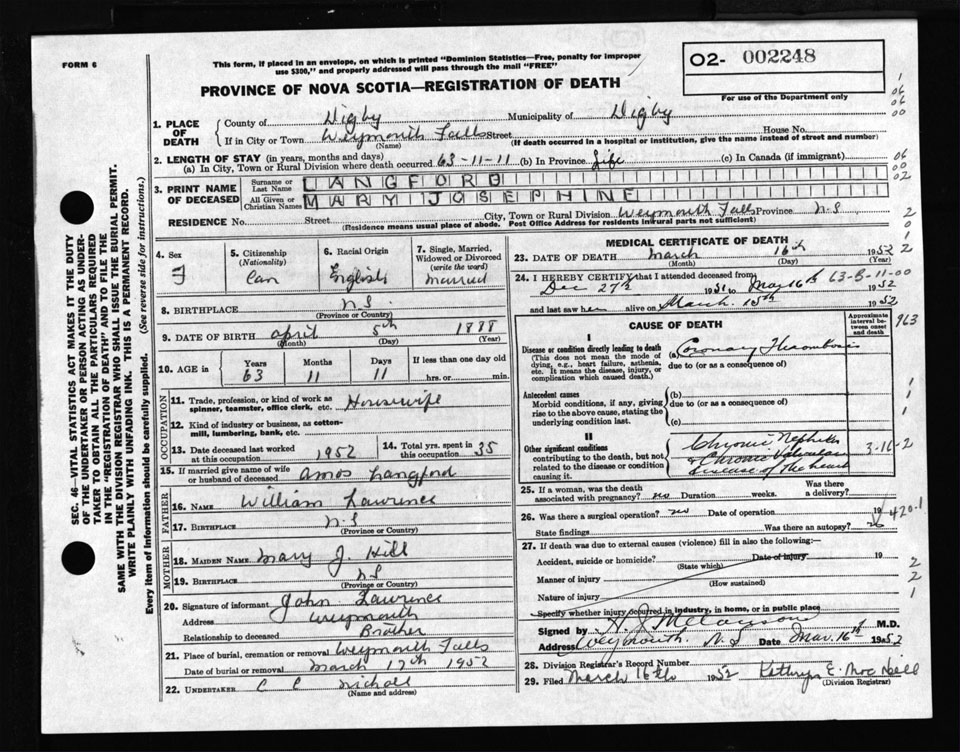 FORM 6
This form, if placed in an envelope, on which is printed "Dominion Statistics—Free, penalty for improper
use $300," and properly addressed will pass through the mail "FREE"
O2- 002248
For use of the Department only
PROVINCE OF NOVA SCOTIA—REGISTRATION OF DEATH
1. PLACE OF DEATH
County of Digby Municipality of Digby
If in City or Town Weymouth Falls Street House No.
(Name) (If death occurred in a hospital or institution, give the name instead of street and number)
2. LENGTH OF STAY (in years, months and days)
(a) In City, Town or Rural Division where death occurred 63-11-11 (b) In Province Life (c) In Canada (if immigrant)
3. PRINT NAME OF DECEASED
Surname or Last Name LANGFORD
All Given or Christian Names MARY JOSEPHINE
RESIDENCE No. Street City, Town or Rural Division Weymouth Falls Province N.S
(Residence means usual place of abode. Post Office Address for residents in rural parts not sufficient)
4. Sex
F
5. Citizenship
(Nationality)
Can
6. Racial Origin
English
7. Single, Married,
Widowed or Divorced
(write the word)
married
8. BIRTHPLACE N.S.
(Province or Country)
9. DATE OF BIRTH April 5th 1888
(Month) (Day) (Year)
10. AGE in
Years Months Days If less than one day old
63 11 11 hrs. or min.
OCCUPATION
11. Trade, profession, or kind of work as
spinner, teamster, office clerk, etc. Housewife
12. Kind of industry or business, as cotton-
mill, lumbering, bank, etc.
13. Date deceased last worked
at this occupation 1952
14. Total yrs. spent in
this occupation 35
15. If married give name of wife
or husband of deceased Amos Langford
FATHER
16. NAME William Lawrence
17. BIRTHPLACE N.S
(Province or Country)
MOTHER
18. MAIDEN NAME Mary J. Hill
19. BIRTHPLACE N.S
(Province or Country)
20. Signature of informant John Lawrence
Address Weymouth
Relationship to deceased Brother
21. Place of burial, cremation or removal Weymouth Falls
Date of burial or removal March 17th 1952
22. UNDERTAKER C C Nichols
(Name and address)
MEDICAL CERTIFICATE OF DEATH
23. DATE OF DEATH March 16th 1952
(Month) (Day) (Year)
24. I HEREBY CERTIFY that I attended deceased from 63-B-11-00
Dec 27th 1951 to Mar 16th 1952
and last saw her alive on March. 15th 1952
CAUSE OF DEATH
Approximate
interval be-
tween onset
and death
963
I
Disease or condition directly leading to death (a) Coronary Thrombosis
(This does not mean the mode of
dying, e.g., heart failure, asthenia,
etc. It means the disease, injury, or
complication which caused death.)
due to (or as a consequence of)
Antecedent causes (b)
Morbid conditions, if any, giving
rise to the above cause, stating the
underlying condition last.
due to (or as a consequence of)
(c)
II
Other significant conditions
contributing to the death, but not
related to the disease or condition
causing it.
Chronic Nephritis
& Chronic Valvular
disease of the heart
3-16-2
25. If a woman, was the death
associated with pregnancy? no Duration weeks. Was there
a delivery?
26. Was there a surgical operation? no Date of operation 19
State findings Was there an autopsy? no
420-1
27. If death was due to external causes (violence) fill in also the following:
Accident, suicide or homicide? Date of injury 19
(State which)
Manner of injury
(How sustained)
Nature of injury
Specify whether injury occurred in industry, in home, or in public place
Signed by M.D.
Address Weymouth. N.S Date Mar. 16th 1952
28. Division Registrar's Record Number
29. Filed March 16th 1952 Kathryn E. MacNeill
(Division Registrar)
SEC. 46—VITAL STATISTICS ACT MAKES IT THE DUTY
OF THE UNDERTAKER OR PERSON ACTING AS UNDER-
TAKER TO OBTAIN ALL THE PARTICULARS REQUIRED
IN THE "REGISTRATION OF DEATH" AND TO FILE THE
SAME WITH THE DIVISION REGISTRAR WHO SHALL ISSUE THE BURIAL PERMIT.
WRITE PLAINLY WITH UNFADING INK. THIS IS A PERMANENT RECORD.
Every item of information should be carefully supplied. (See reverse side for instructions.)